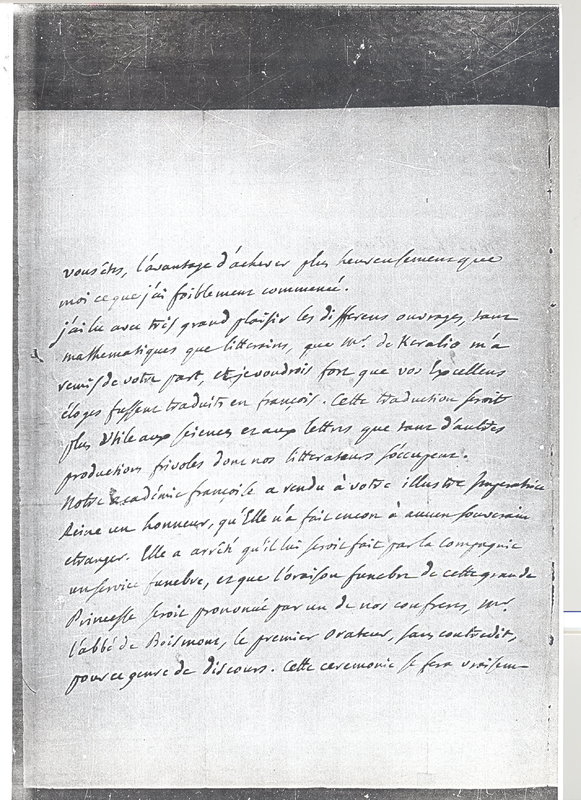 vous êtes, l'avantage d'achever plus heureusement que
moi ce que j'ai foiblement commencé.
j'ai lu avec très grand plaisir les differens ouvrages, tant
mathematiques que litteraires, que Mr. de Keralio m'a
remis de votre part, et je voudrois fort que vos Excellens
éloges fussent traduits en françois. Cette traduction seroit
plus utile aux sciences et aux lettres que tant d'autres
productions frivoles dont nos litterateurs s'occupent.
Notre académie françoise a rendu à votre illustre Imperatrice
Reine un honneur, qu'Elle n'a fait encore à aucun souverain
etranger. Elle a arrêté qu'il lui seroit fait par la Compagnie
un service funebre, et que l'oraison funebre de cette grande
Princesse seroit prononcée par un de nos confreres, Mr.
l'abbé de Boismont, le premier Orateur, sans contredit,
pour ce genre de discours. Cette ceremonie se fera vraisem-